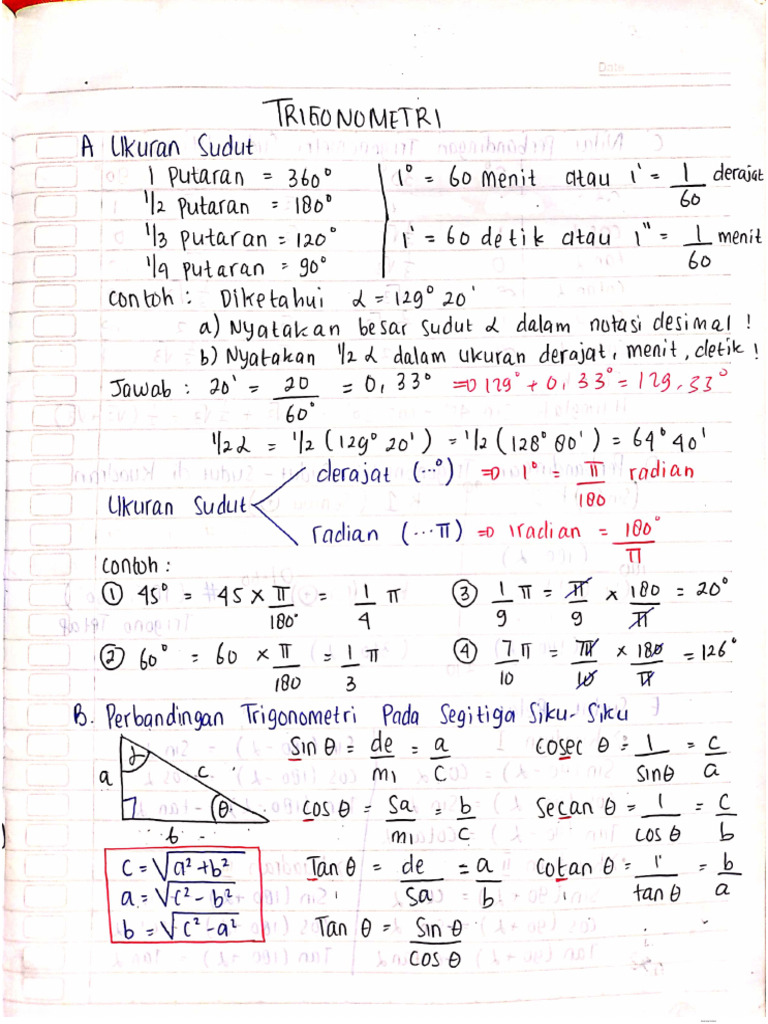 Date
TRIGONOMETRI
A Ukuran Sudut
1 Putaran = 360°
1/2 putaran = 180°
1/3 putaran = 120°
1/4 putaran = 90°
1° = 60 menit atau 1' = 1/60 derajat
1' = 60 detik atau 1" = 1/60 menit
Contoh : Diketahui α = 129° 20'
a) Nyatakan besar sudut α dalam notasi desimal !
b) Nyatakan 1/2 α dalam ukuran derajat, menit, detik !
Jawab : 20' = 20/60° = 0,33° => 129° + 0,33° = 129,33°
1/2 α = 1/2 (129° 20') = 1/2 (128° 80') = 64° 40'
Ukuran Sudut
derajat (...°) => 1° = π/180 radian
radian (...π) => 1radian = 180°/π
Contoh :
① 45° = 45 × π/180° = 1/4 π
③ 1/9 π = π/9 × 180/π = 20°
② 60° = 60 × π/180 = 1/3 π
④ 7/10 π = 7π/10 × 180/π = 126°
B. Perbandingan Trigonometri Pada Segitiga Siku-Siku
α
a
c
θ
b
Sin θ = de/mi = a/c
cosec θ = 1/sin θ = c/a
cos θ = sa/mi = b/c
Secan θ = 1/cos θ = c/b
Tan θ = de/sa = a/b
cotan θ = 1/tan θ = b/a
Tan θ = Sin θ/cos θ
c = √a² + b²
a = √c² - b²
b = √c² - a²